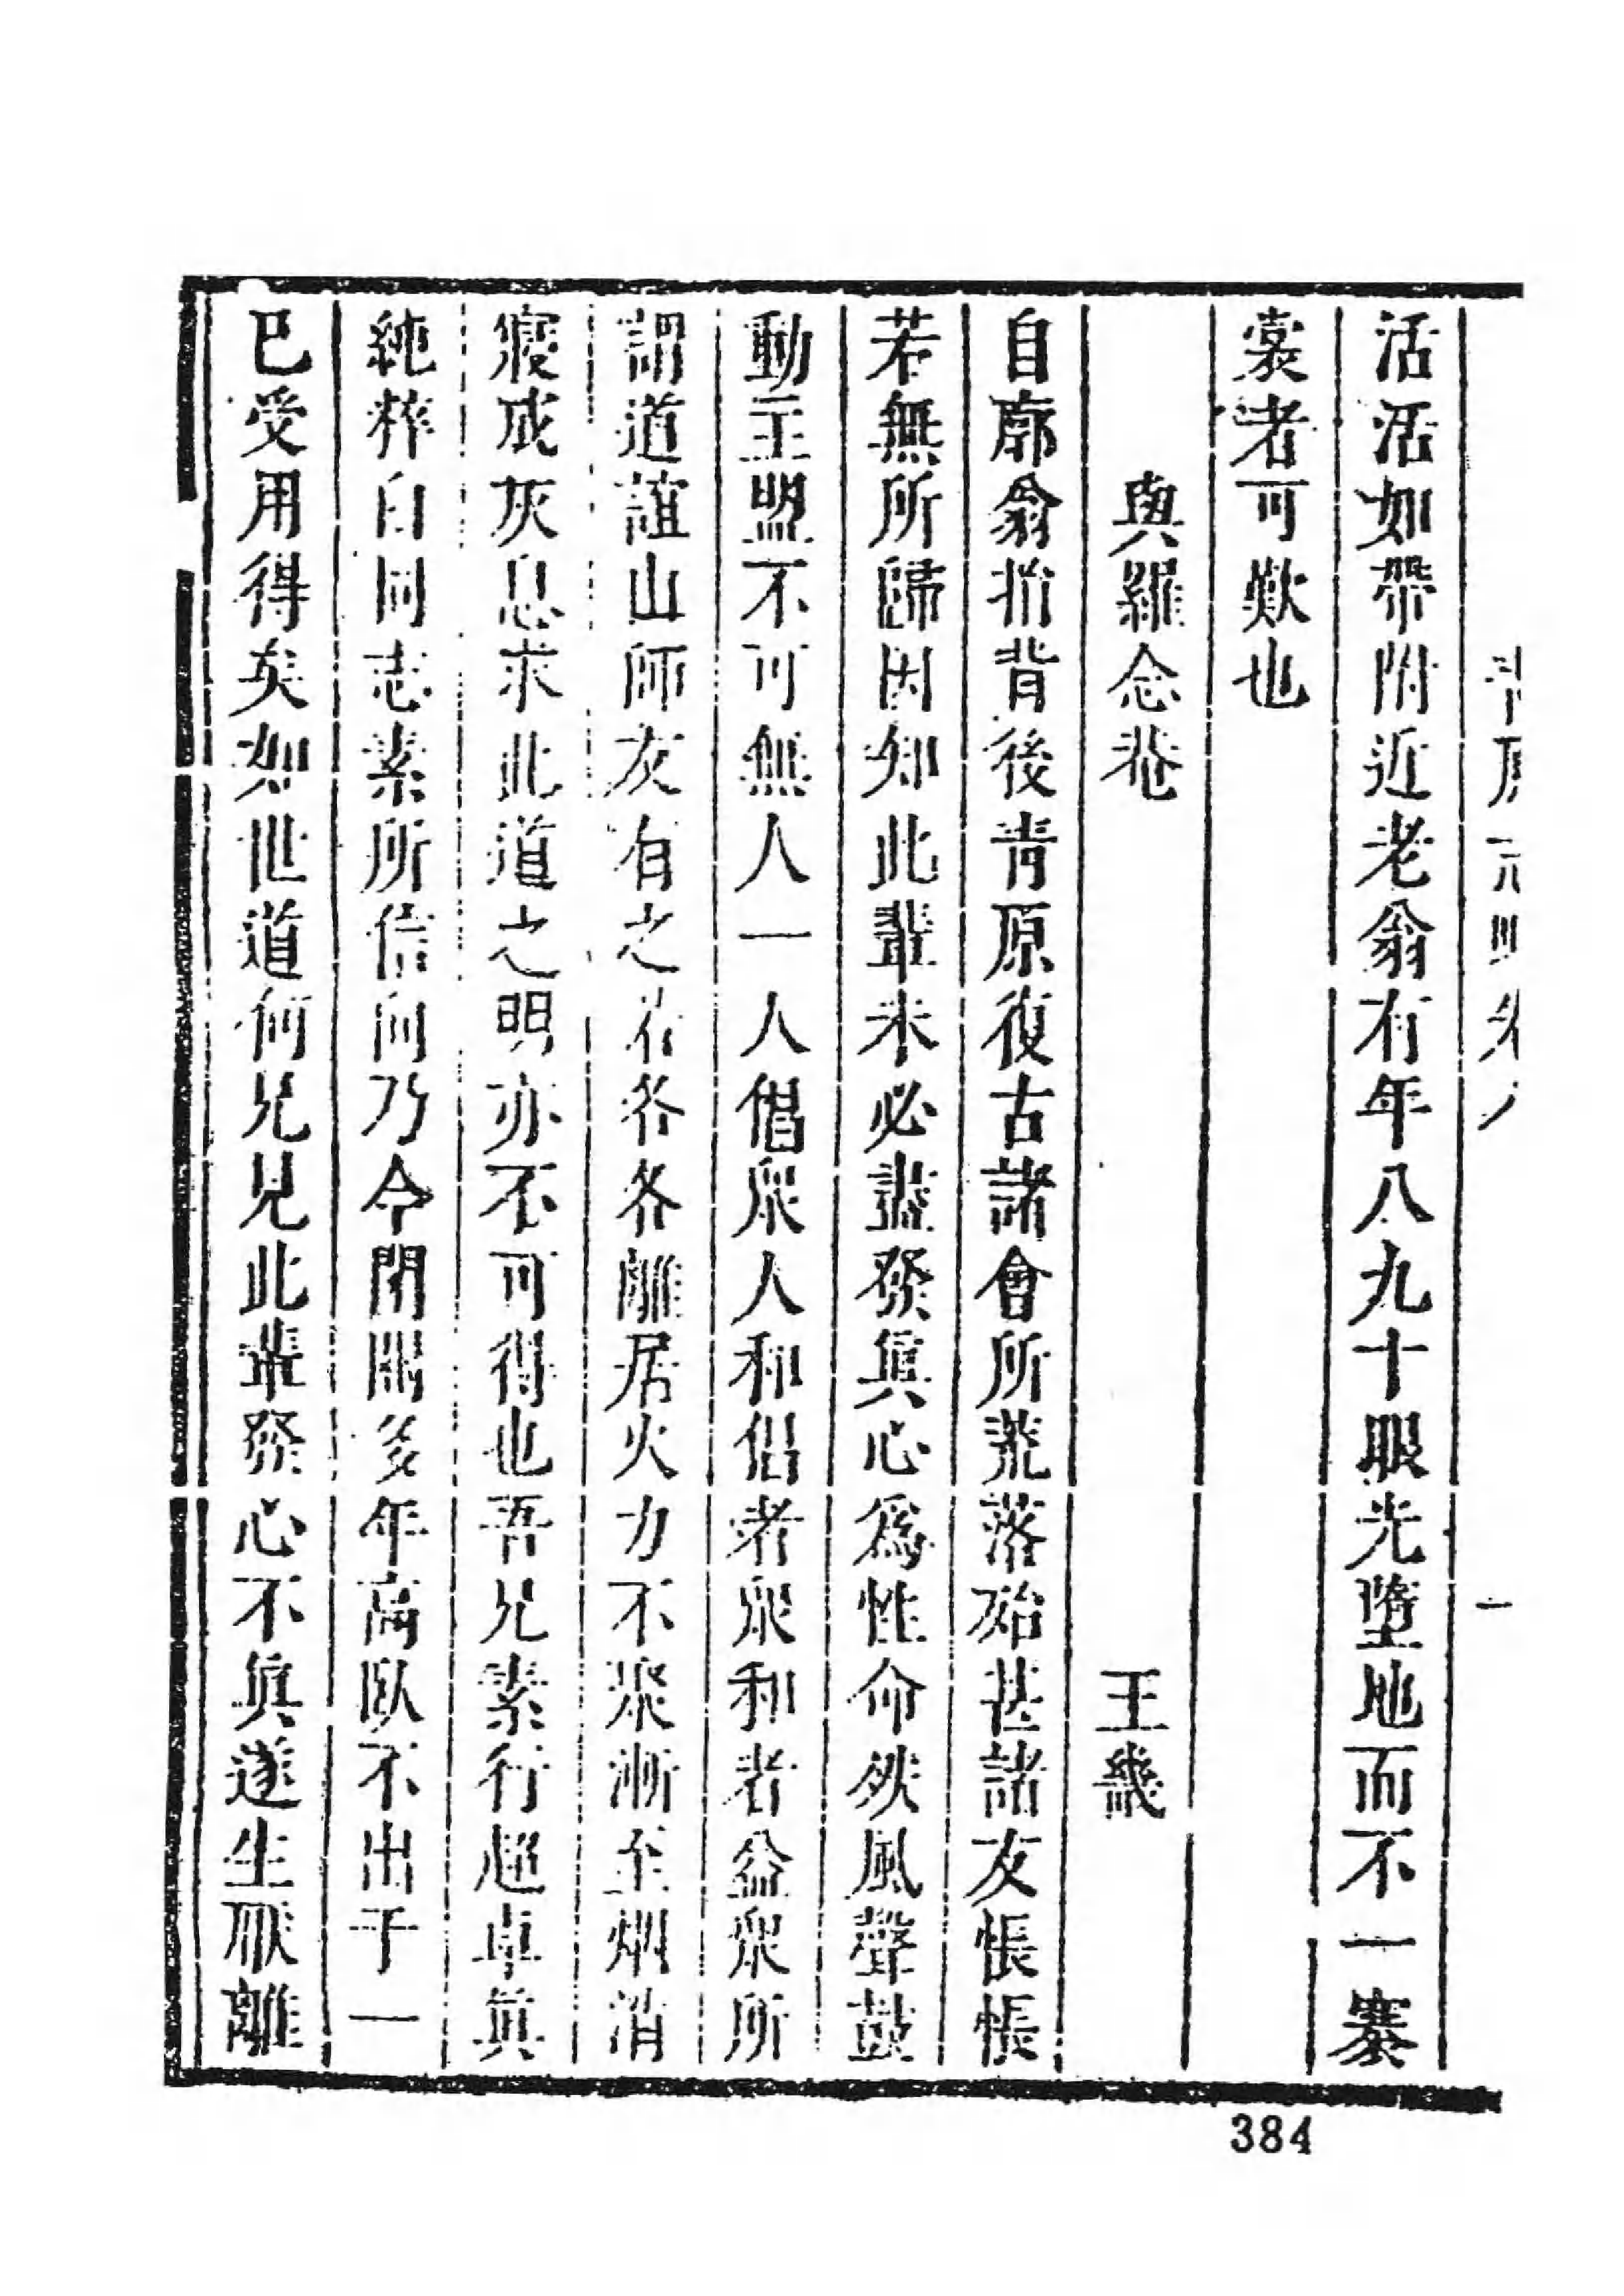 活活如帶附近老翁有年八九十眼光墮地而不一褰
裳者可歎也
與羅念菴
王畿
自廓翁捐背後青原復古諸會所荒落殆甚諸友悵悵
若無所歸因知此輩未必盡發眞心爲性命然風聲鼓
動主盟不可無人一人倡衆人和倡者衆和者益衆所
謂道誼由師友有之若各各離居火力不聚漸至烟消
寢成灰息求此道之明亦不可得也吾兄素行超卓眞
純粹白同志素所信向乃今閉關多年高臥不出于一
已受用得矣如世道何兄見此輩發心不眞遂生厭離
青原
384